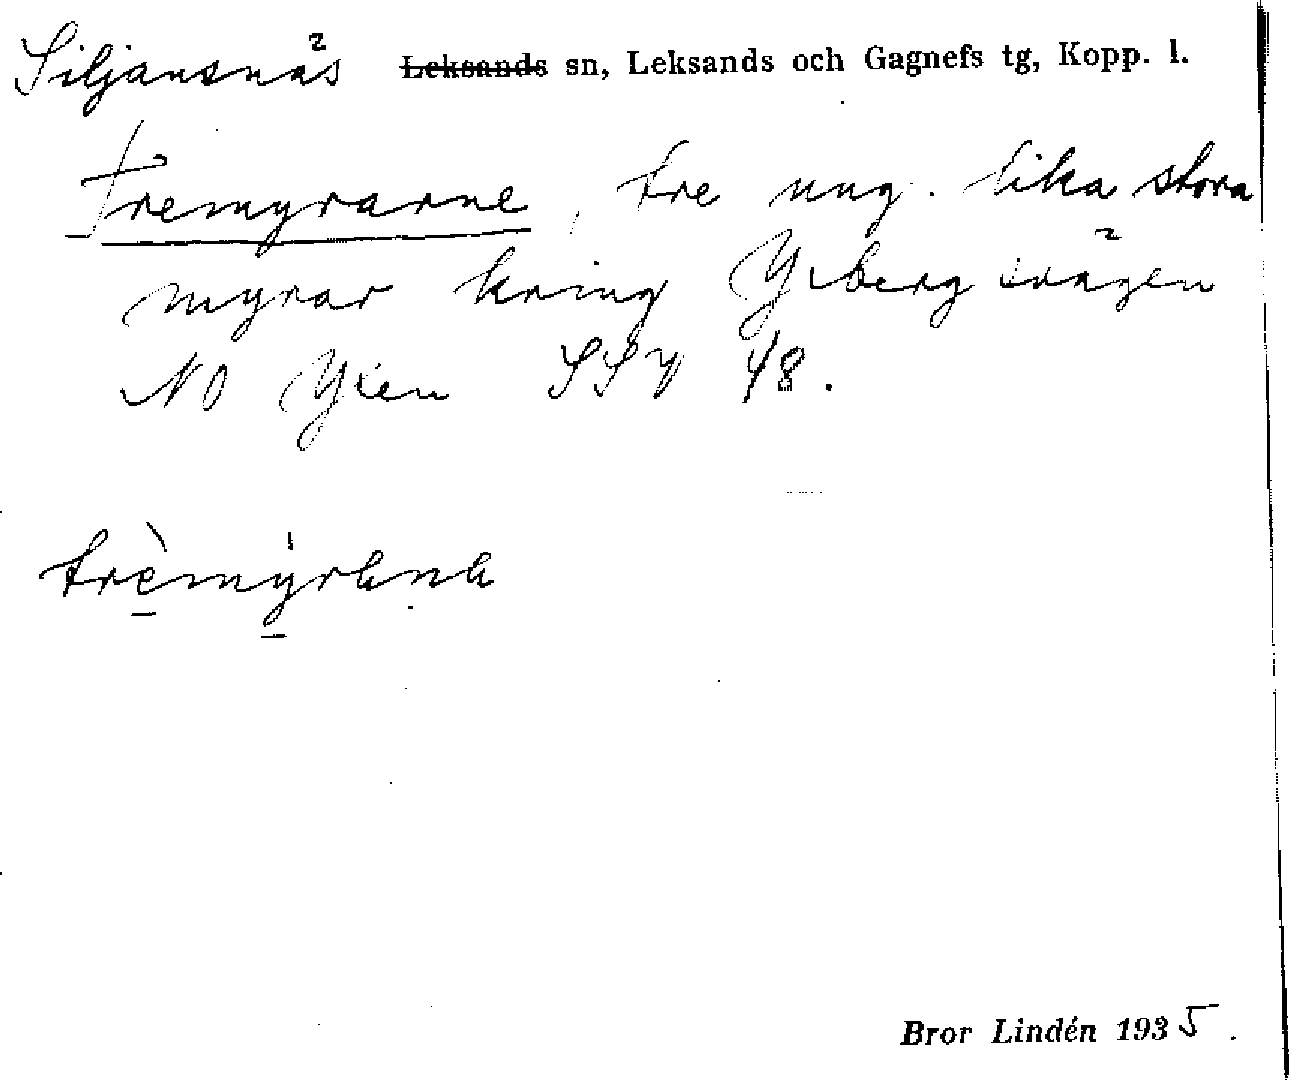 Siljansnäs Leksands sn, Leksands och Gagnefs tg, Kopp. l.
Tremyrarne, tre ung. lika stora
myrar kring Ysbergsvägen
NO Ysen SSV 48.
trèmýrana
Bror Lindén 1935.